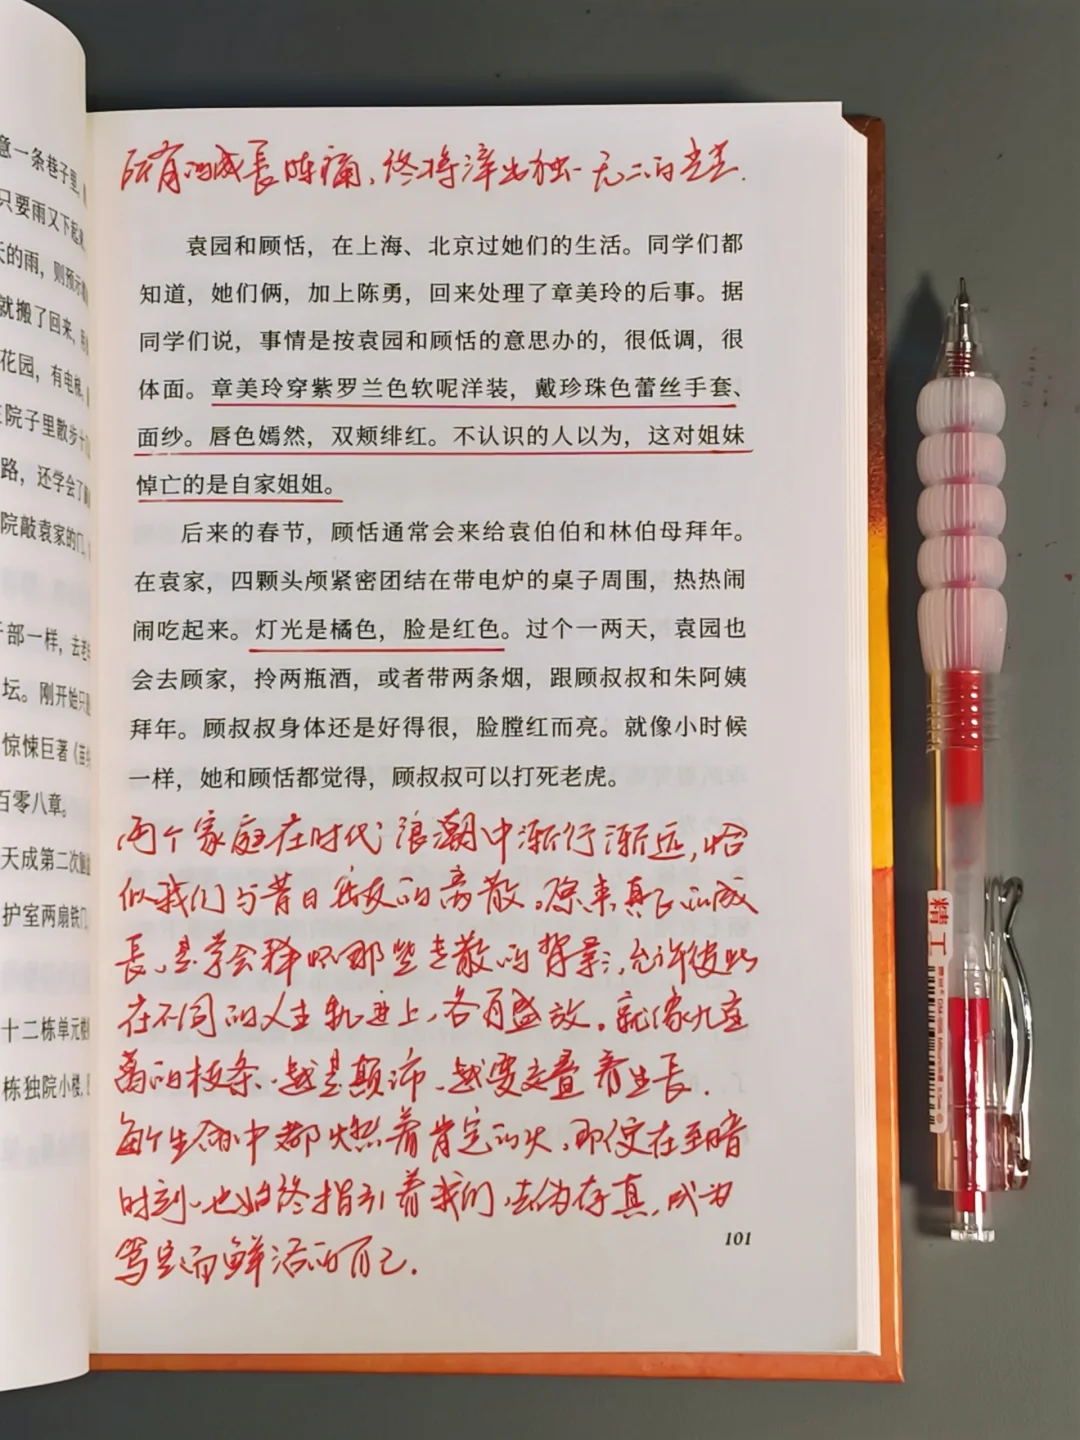 意一条巷子里,
只要雨又下起来
天的雨，则预示
就搬了回来,
花园，有电梯,
院子里散步
路，还学会了
院敲袁家的门,
干部一样，去老
坛。刚开始只
惊悚巨著《苗
百零八章。
天成第二次脑
护室两扇铁门
十二栋单元楼
栋独院小楼,
所有的成长阵痛，终将淬出独一无二的
袁园和顾恬，在上海、北京过她们的生活。同学们都
知道，她们俩，加上陈勇，回来处理了章美玲的后事。据
同学们说，事情是按袁园和顾恬的意思办的，很低调，很
体面。章美玲穿紫罗兰色软呢洋装，戴珍珠色蕾丝手套、
面纱。唇色嫣然，双颊绯红。不认识的人以为，这对姐妹
悼亡的是自家姐姐。
后来的春节，顾恬通常会来给袁伯伯和林伯母拜年。
在袁家，四颗头颅紧密团结在带电炉的桌子周围，热热闹
闹吃起来。灯光是橘色，脸是红色。过个一两天，袁园也
会去顾家，拎两瓶酒，或者带两条烟，跟顾叔叔和朱阿姨
拜年。顾叔叔身体还是好得很，脸膛红而亮。就像小时候
一样，她和顾恬都觉得，顾叔叔可以打死老虎。
两个家庭在时代浪潮中渐行渐远，恰
似我们与昔日密友的离散。原来真正的成
长，是学会释怀那些走散的背影，允许彼此
在不同的人生轨迹上，各自盛放。就像九重
葛的枝条，越是颠沛，越要交叠着生长.
每个生命中都燃着肯定的火，即使在至暗
时刻，也始终指引着我们，去伪存真，成为
笃定而鲜活的自己.
101
精工